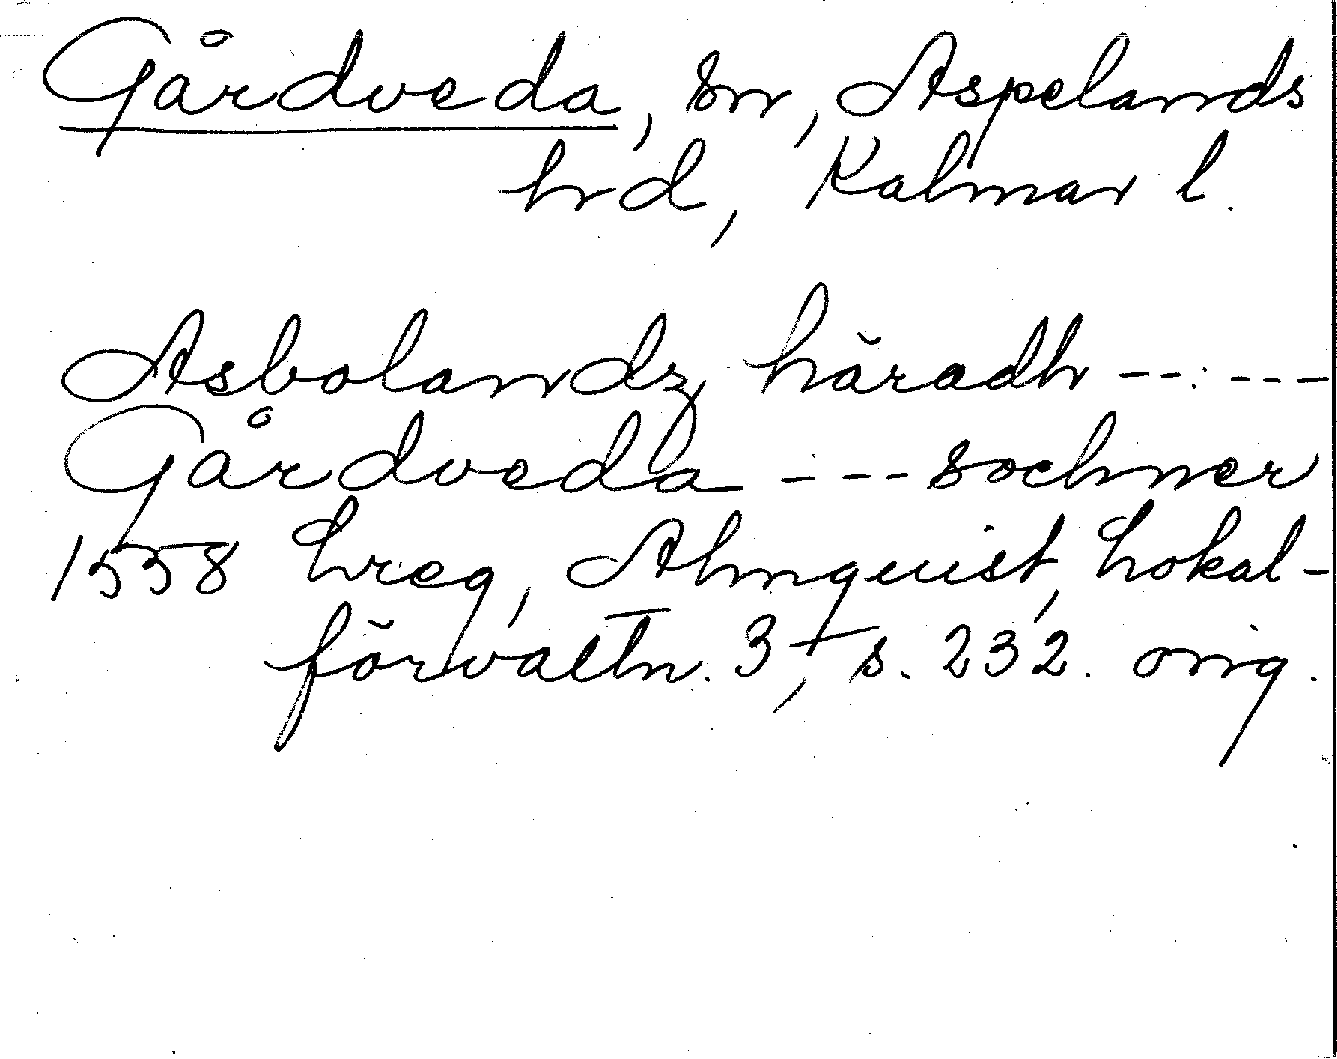 Gårdveda, sn, Aspelands
hrd, Kalmar l.
Asbolandz häradh -- : ---
Gårdveda - --- sochner
1558 Lreg, Almquist, Lokal-
förvaltn. 3, s. 232. orig.